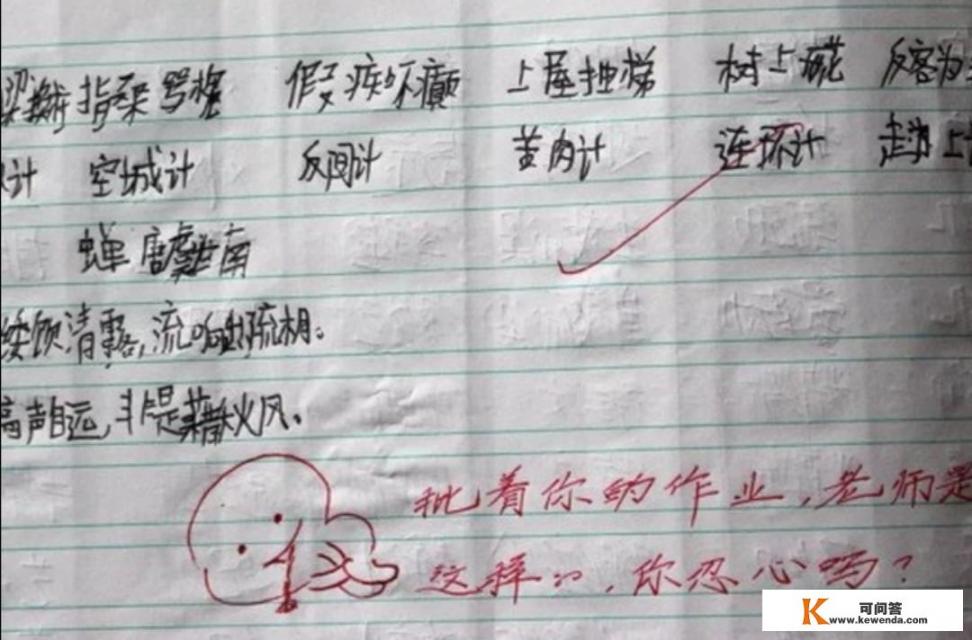 梁换柱 指桑骂槐 假痴不癫 上屋抽梯 树上开花 反客为
计 空城计 反间计 苦肉计 连环计 走为上
蝉 虞世南
緌饮清露,流响出疏桐。
高声自远,非是藉秋风。
批着你的作业,老师是
这样的,你忍心吗?
K 可问答
www.kewenda.com